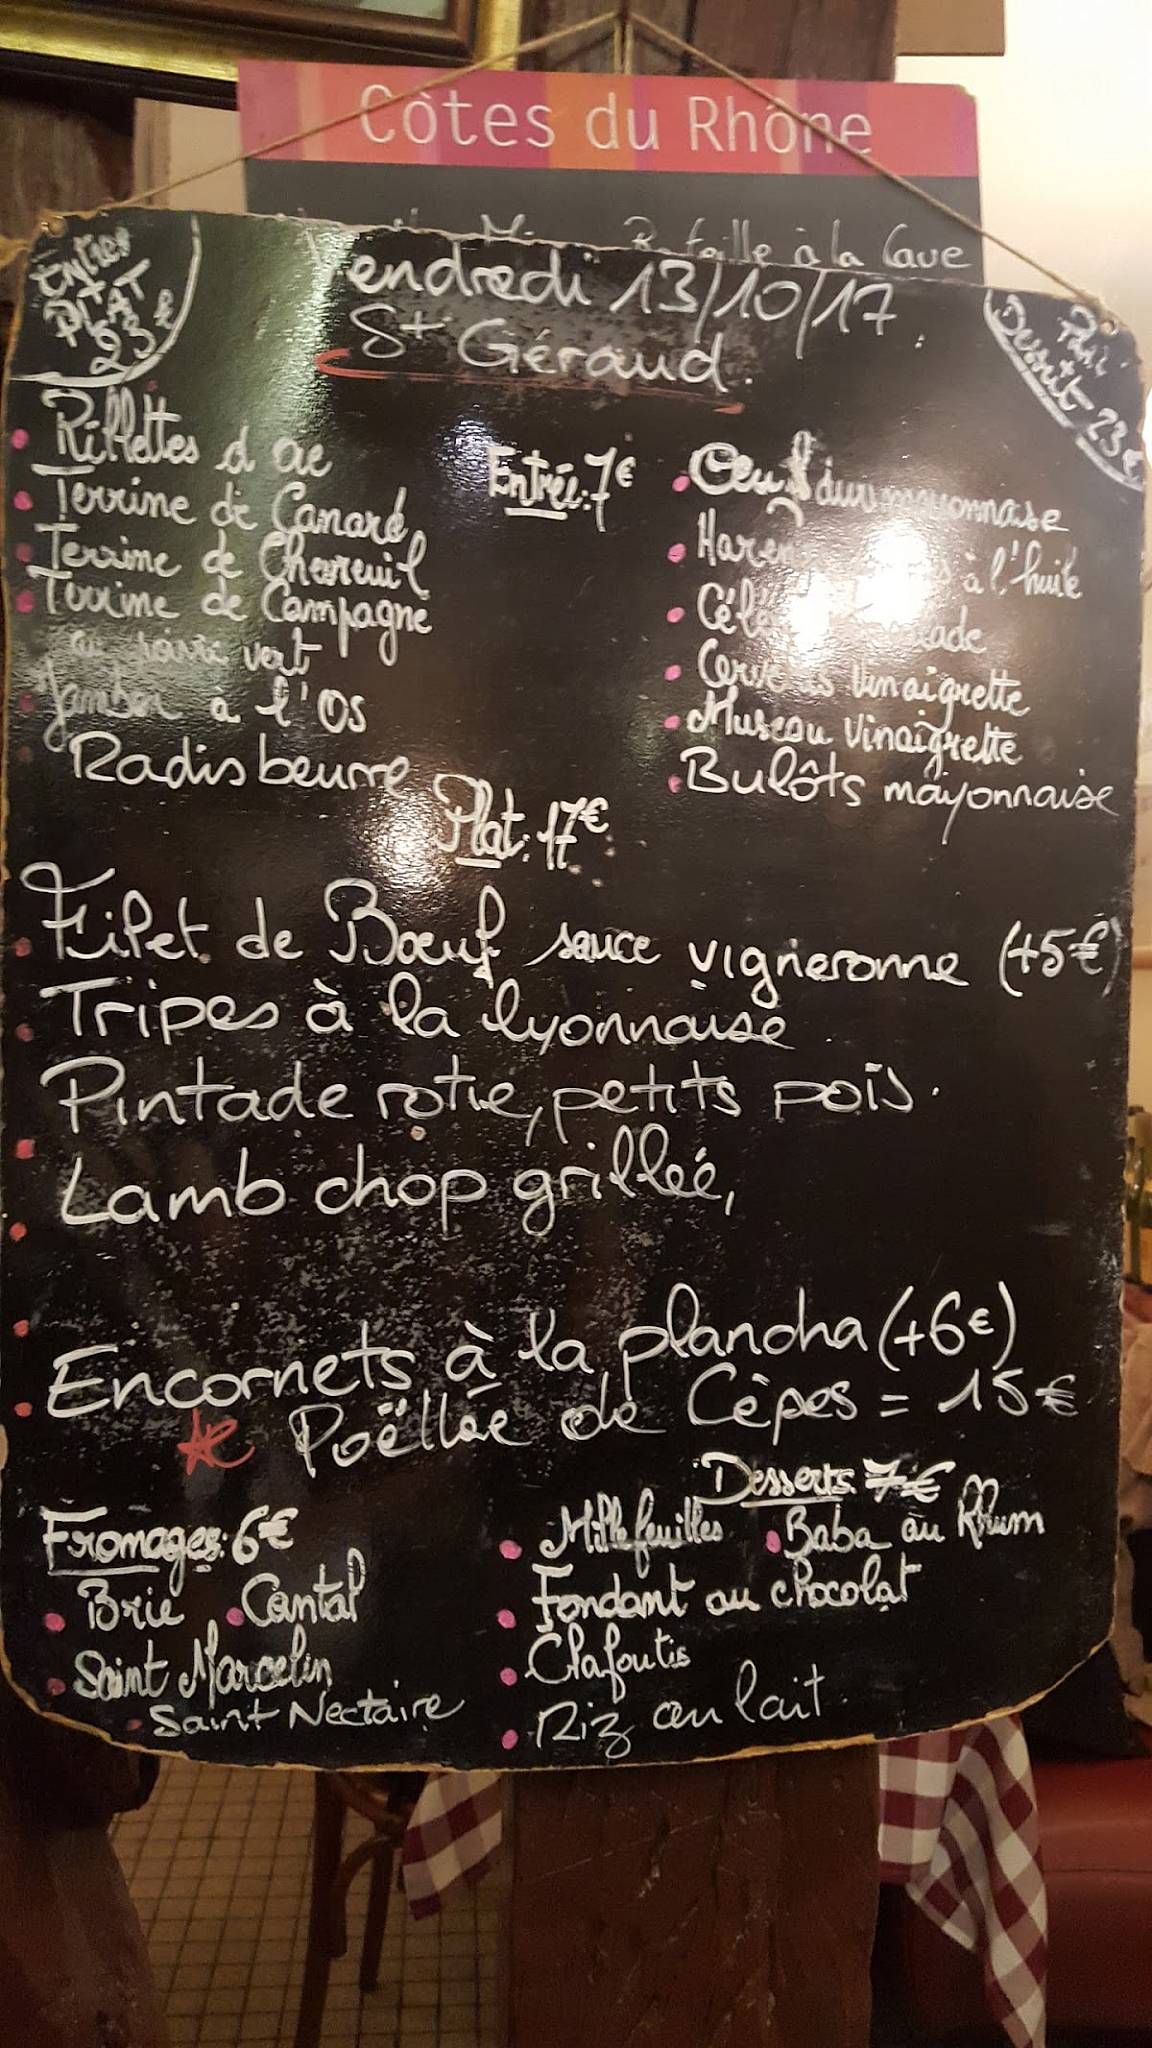 Côtes du Rhône
à la Cave
Vendredi 13/10/17
St Géraud.
Entrée
PLAT
23€
Dessert 23€
Entrée: 7€
Rillettes d'oie
Terrine de Canard
Terrine de Chevreuil
Terrine de Campagne
vert
Jambon à l'OS
Radis beurre
Oeufs durs mayonnaise
à l'huile
Cervelas Vinaigrette
Museau Vinaigrette
Bulôts mayonnaise
Plat: 17€
Filet de Boeuf sauce vigneronne (+5€)
Tripes à la lyonnaise
Pintade rotie, petits pois.
Lamb chop grillée,
Encornets à la plancha (+6€)
Poëllée de Cèpes = 15€
Fromages: 6€
Brie Cantal
Saint Marcelin
Saint Nectaire
Desserts 7€
Millefeuilles Baba au Rhum
Fondant au chocolat
Clafoutis
Riz au lait